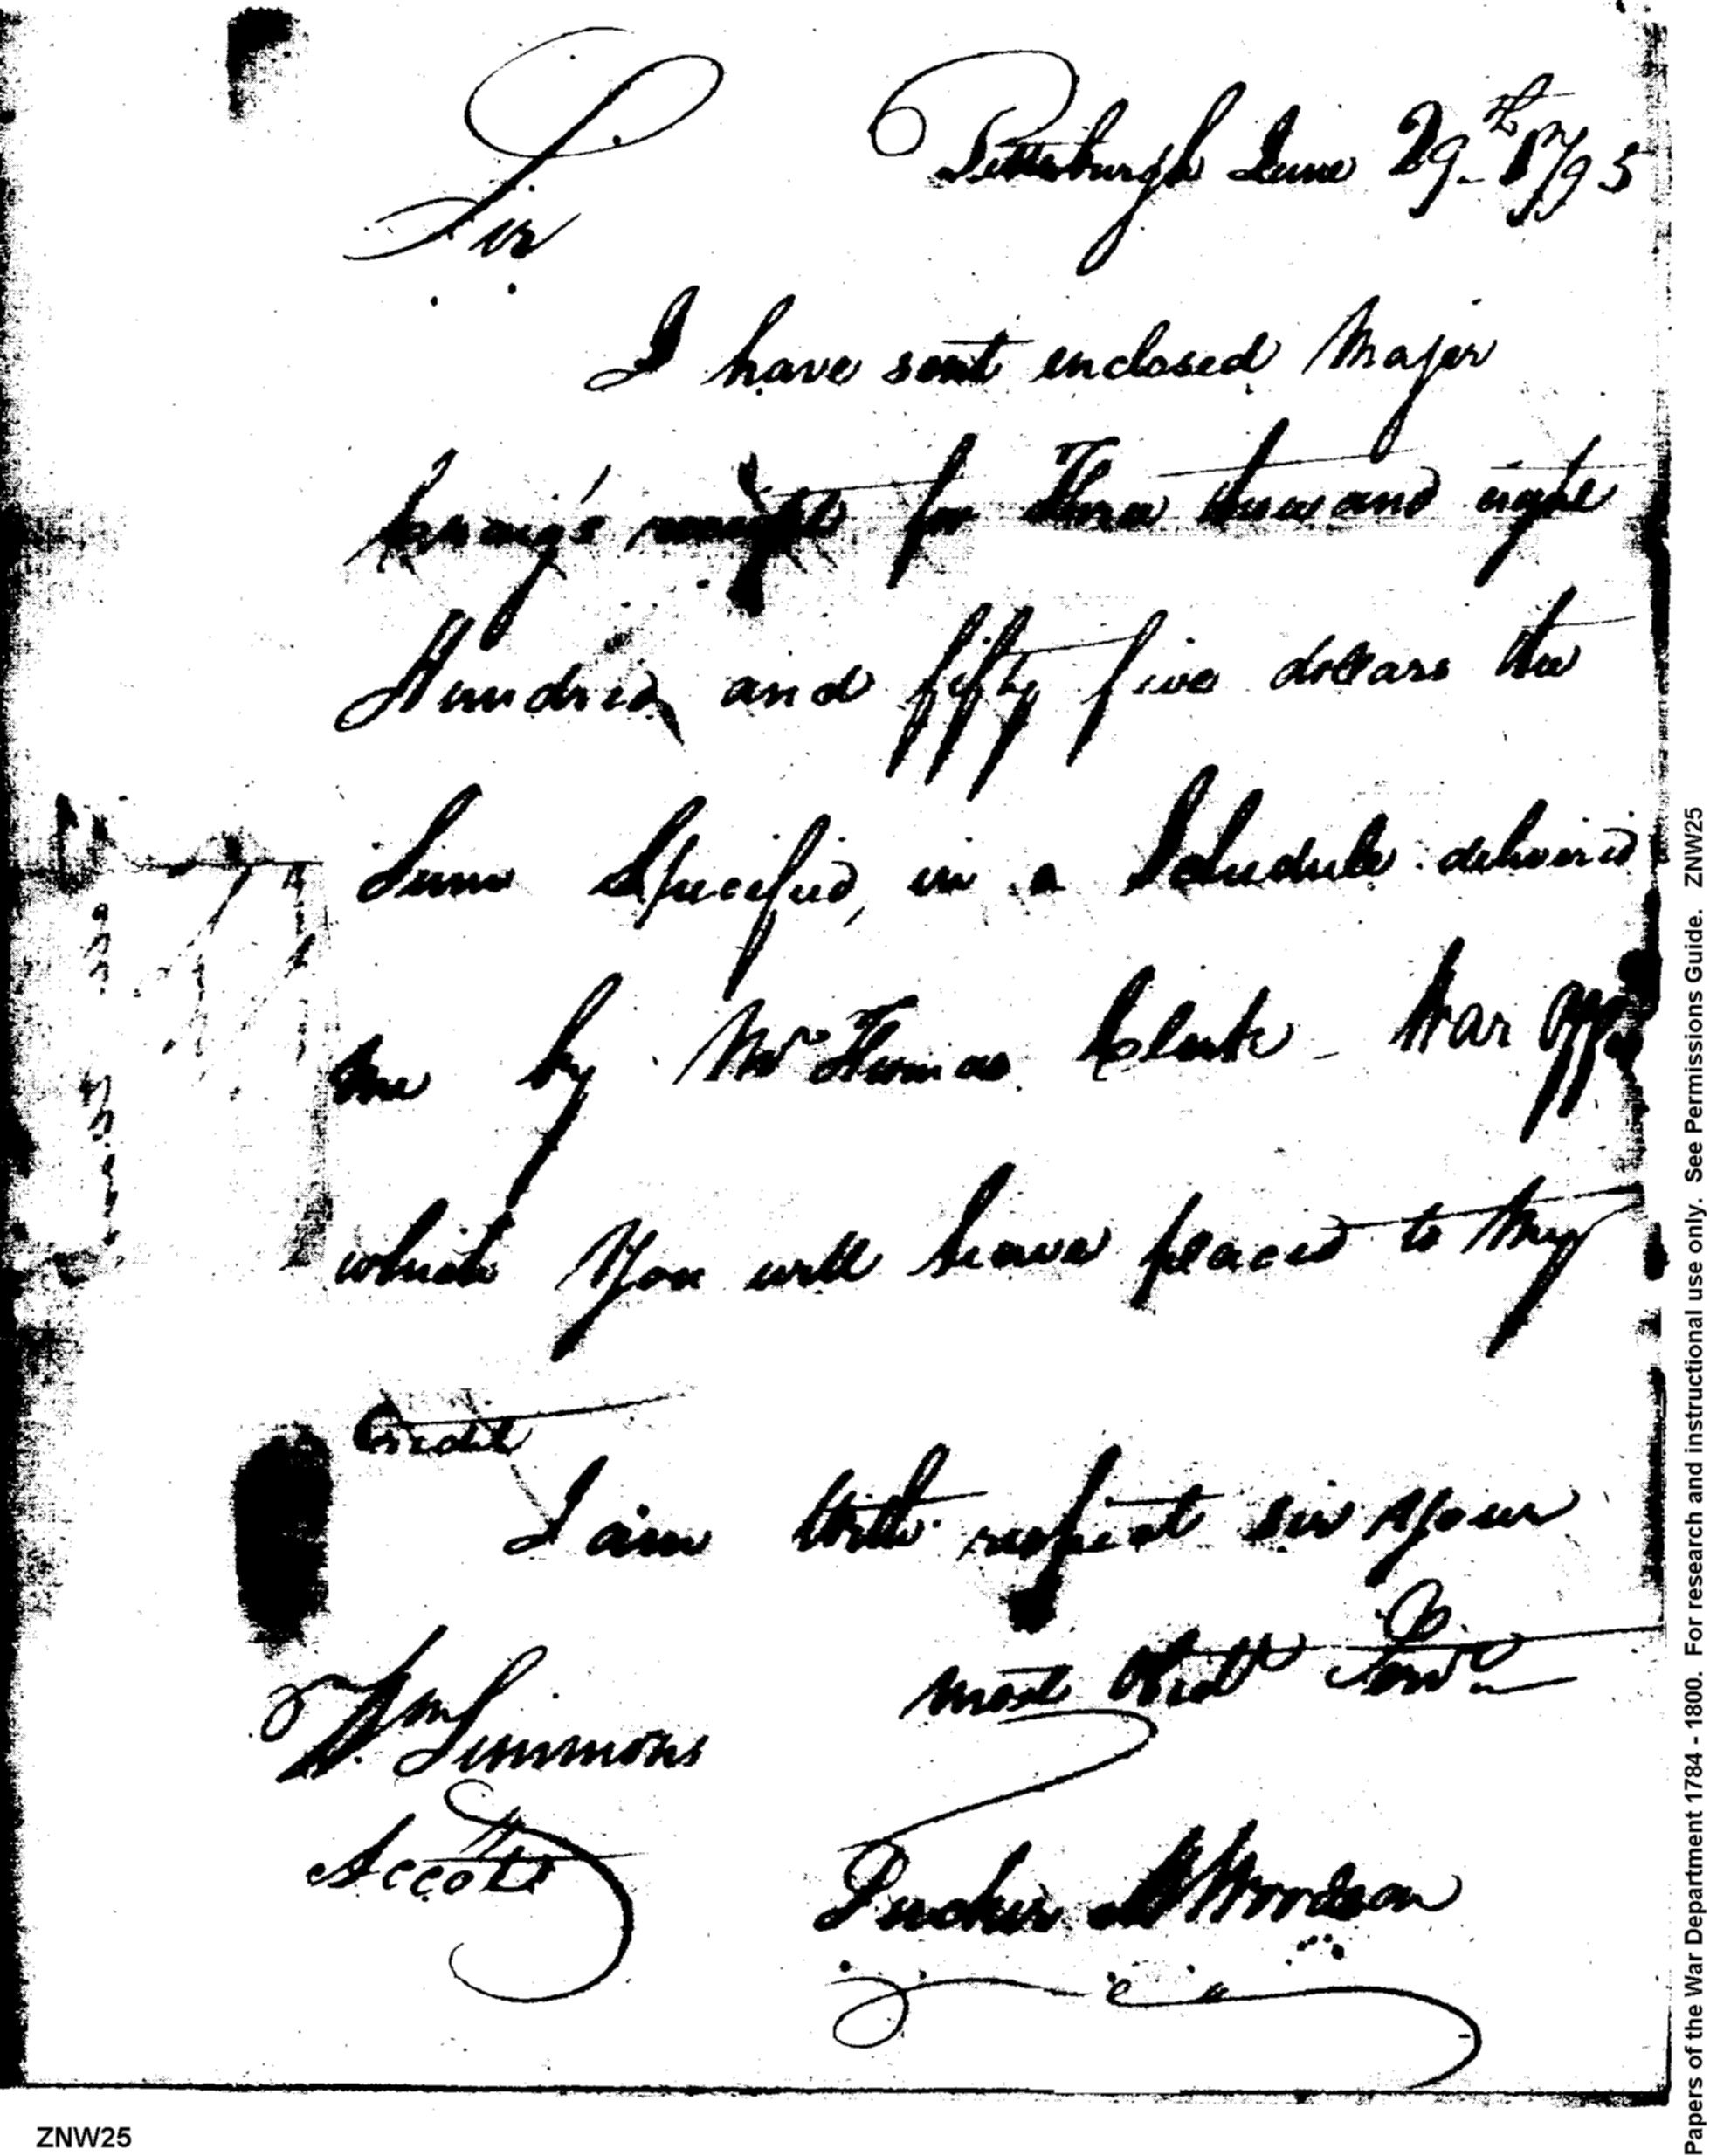 Pittsburgh June 29th 1795
Sir
I have sent enclosed Major
Craig's receipt for Three thousand eight
Hundred and fifty five dollars the
Sum Specified, in a Schedule delivered
me by Mr Thomas Clerk War Office
which You will have placed to my
Credit
I am With respect sir your
most Obedt Servt
Wm Simmons
Acco
Tucker M Woodson
ZNW25
Papers of the War Department 1784 - 1800. For research and instructional use only. See Permissions Guide. ZNW25